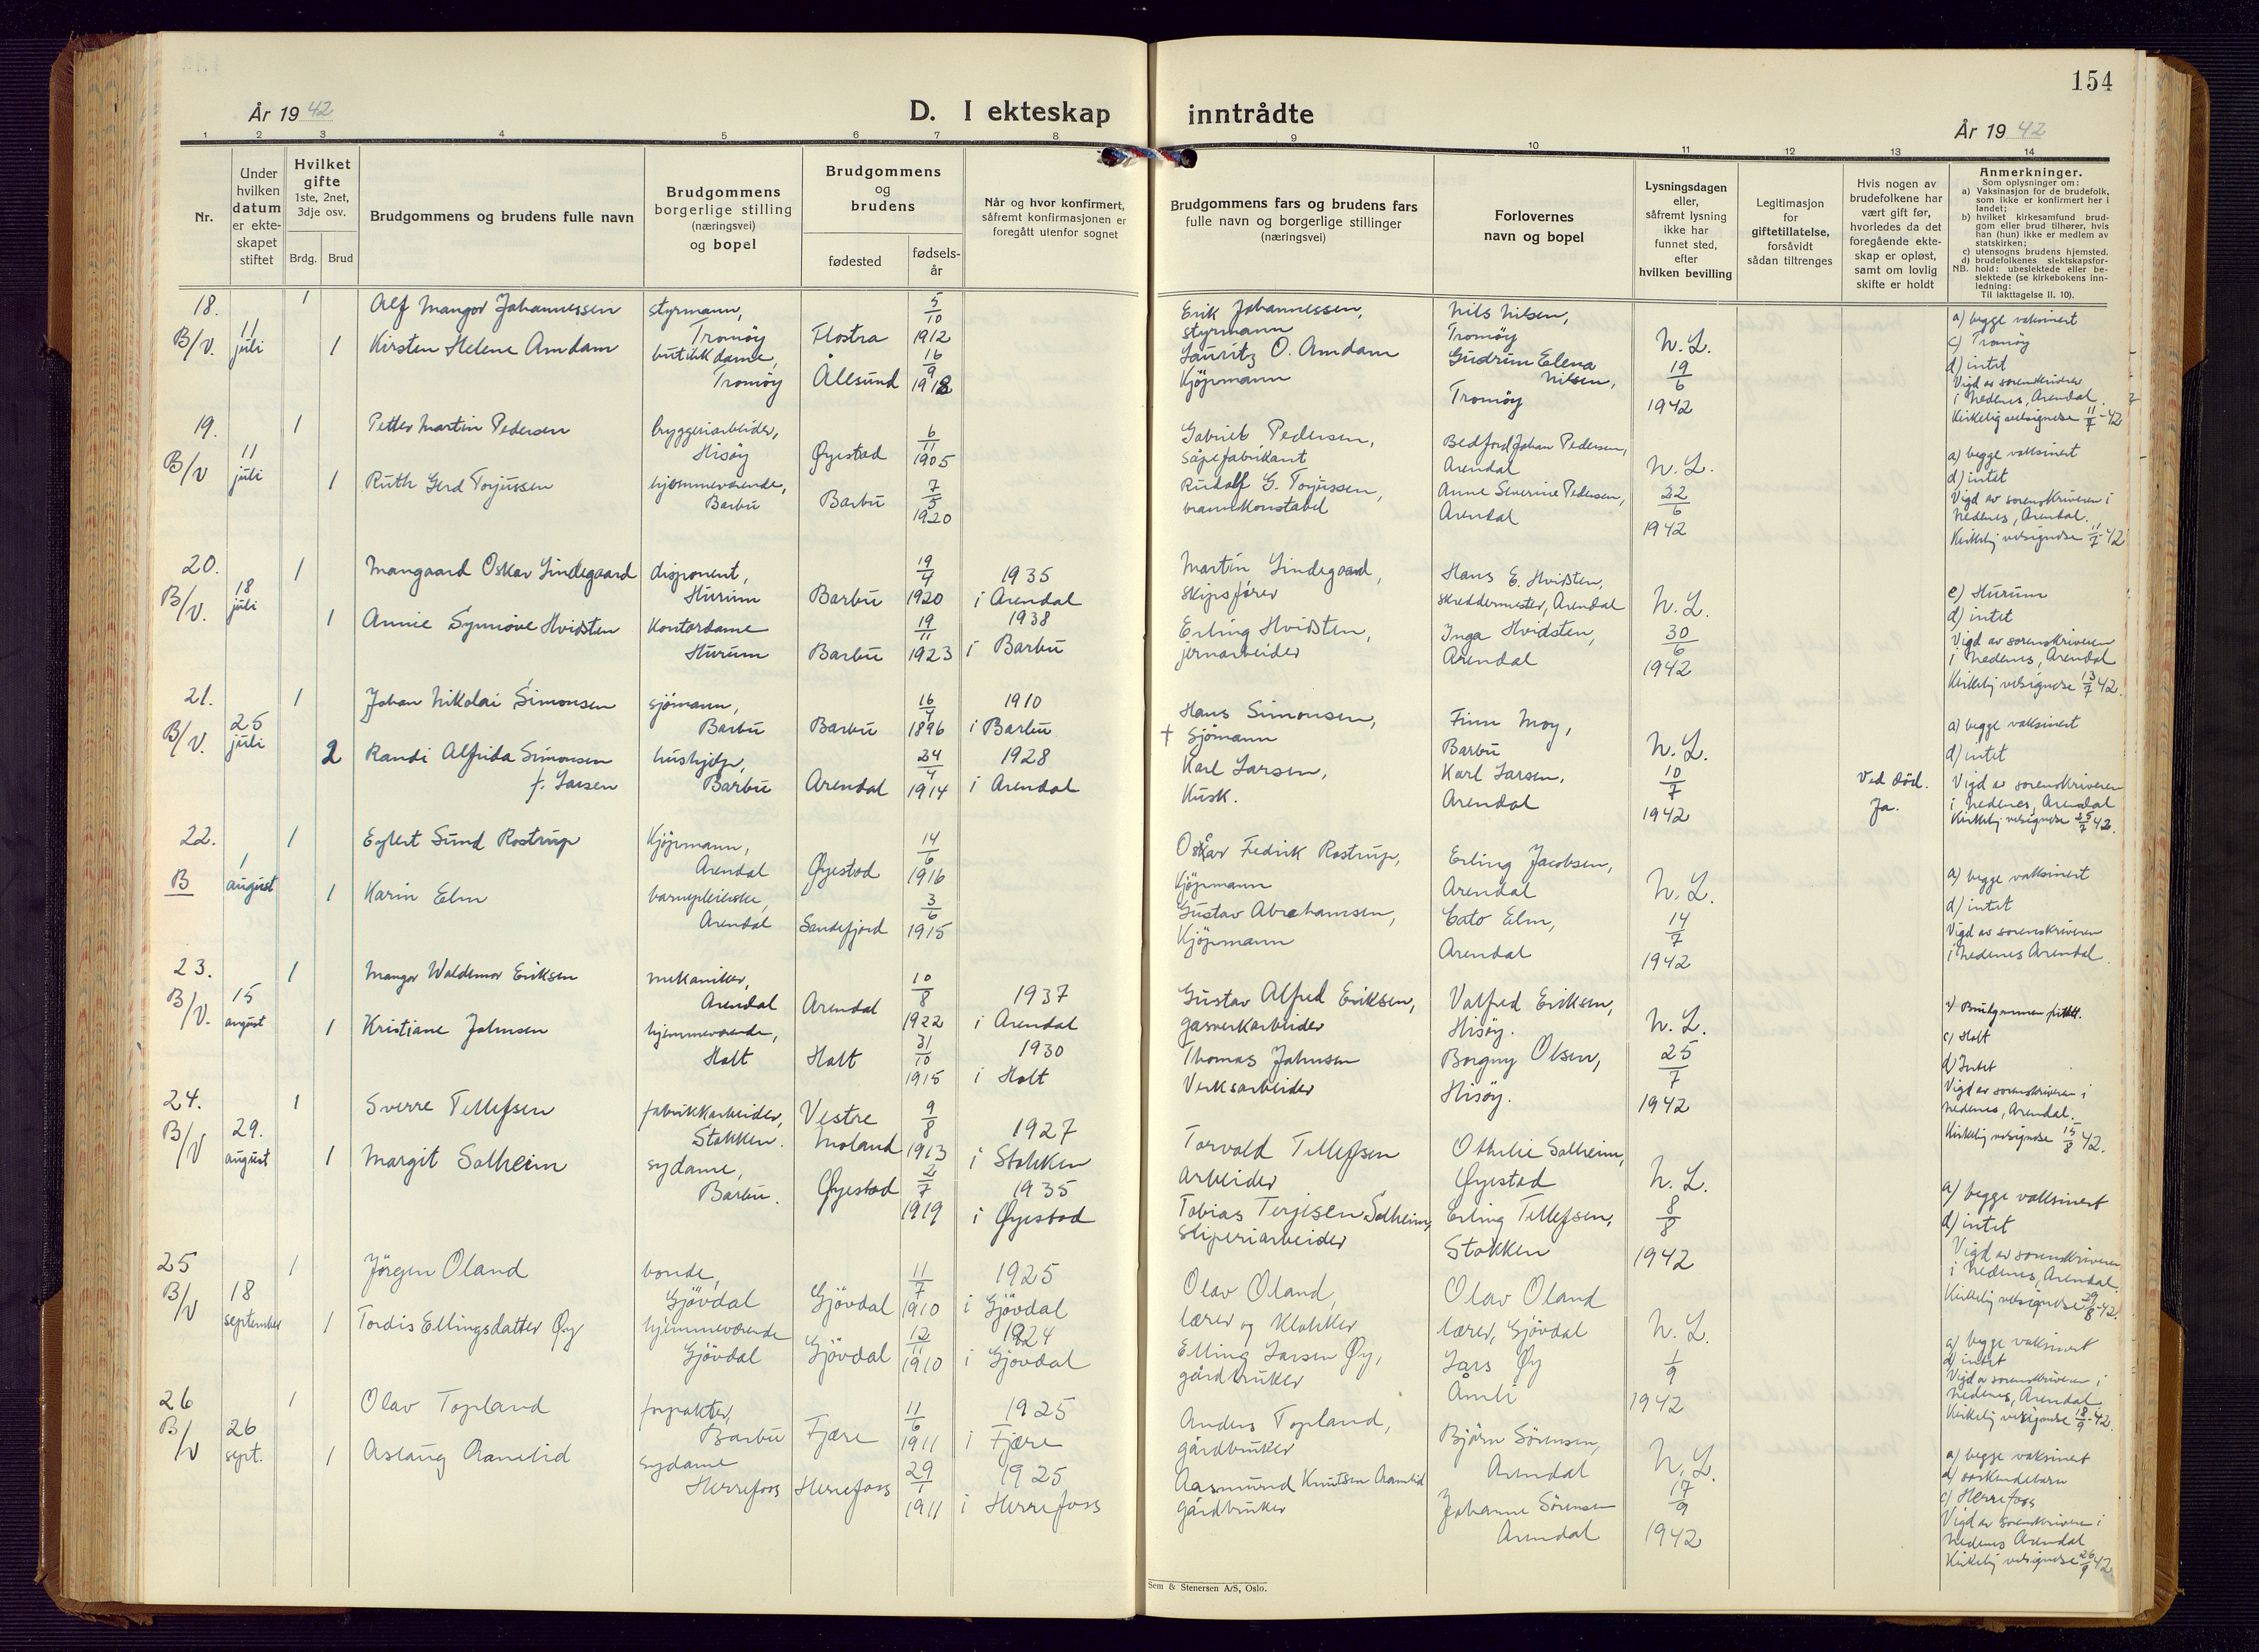 154
År 1942
D. I ekteskap inntrådte
År 1942
1 2 3 4 5 6 7 8 9 10 11 12 13 14
Nr.
Under hvilken datum er ekteskapet stiftet
Hvilket gifte 1ste, 2net, 3dje osv.
Brdg.
Brud
Brudgommens og brudens fulle navn
Brudgommens borgerlige stilling (næringsvei) og bopel
Brudgommens og brudens
fødested
fødsels-år
Når og hvor konfirmert, såfremt konfirmasjonen er foregått utenfor sognet
Brudgommens fars og brudens fars fulle navn og borgerlige stillinger (næringsvei)
Forlovernes navn og bopel
Lysningsdagen eller, såfremt lysning ikke har funnet sted, efter hvilken bevilling
Legitimasjon for giftetillatelse, forsåvidt sådan tiltrenges
Hvis nogen av brudefolkene har vært gift før, hvorledes da det foregående ekteskap er opløst, samt om lovlig skifte er holdt
Anmerkninger.
Som oplysninger om:
a) Vaksinasjon for de brudefolk, som ikke er konfirmert her i landet;
b) hvilket kirkesamfund brudgom eller brud tilhører, hvis han (hun) ikke er medlem av statskirken;
c) utensogns brudens hjemsted.
d) brudefolkenes slektskapsforhold: ubeslektede eller beslektede (se kirkebokens innledning:
NB.
Til iakttagelse II. 10).
18. B/V. 11 juli
1 Alf Mangor Johannessen styrmann, Tromøy Flostra 5/10 1912
1 Kirsten Helene Amdam butikkdame, Tromøy Ålesund 16/9 1918
Erik Johannessen, styrmann
Lauritz O. Amdam Kjøpmann
Nils Nilsen, Tromøy
Gudrun Elena Nilsen, Tromøy
N.L. 19/6 1942
a) begge vaksinert
c) Tromøy
d) intet
Vigd av sorenskriver
i Nedenes, Arendal.
Kirkelig velsignelse 11/7-42
19. B/V 11 juli
1 Petter Martin Pedersen bryggeriarbeider, Hisøy Øyestad 6/11 1905
1 Ruth Gerd Torjussen hjemmeværende, Barbu Barbu 7/5 1920
Gabriel Pedersen, såpefabrikant
Rudolf G. Torjussen, brannkonstabel
Bedford Johan Pedersen, Arendal
Anne Severine Pedersen, Arendal
N.L. 22/6 1942
a) begge vaksinert
d) intet
Vigd av sorenskriveren i
Nedenes, Arendal.
Kirkelig velsignelse 11/7-42
20. B/V. 18 juli
1 Mangaard Oskar Lindegaard disponent, Hurum Barbu 19/4 1920 1935 i Arendal
1 Annie Synnøve Hvidsten Kontordame Hurum Barbu 19/11 1923 1938 i Barbu
Martin Lindegaard, skipsfører
Erling Hvidsten, jernarbeider
Hans E. Hvidsten, skreddermester, Arendal
Inga Hvidsten, Arendal
N.L. 30/6 1942
c) Hurum
d) intet
Vigd av sorenskriveren
i Nedenes, Arendal
Kirkelig velsignelse 13/7 42.
21. B/V. 25 juli
1 Johan Nikolai Simonsen sjømann, Barbu Barbu 16/4 1896 1910 i Barbu
2 Randi Alfrida Simonsen f. Larsen hushjelp, Barbu Arendal 24/4 1914 1928 i Arendal
Hans Simonsen, † Sjømann
Karl Larsen, Kusk.
Finn Moy, Barbu
Karl Larsen, Arendal
N.L. 10/7 1942
Ved død. Ja.
a) begge vaksinert
d) intet
Vigd av sorenskriveren
i Nedenes, Arendal
Kirkelig velsignelse 25/7 42.
22. B 1 august
1 Egbert Sund Rostrup Kjøpmann, Arendal Øyestad 14/6 1916
1 Karin Elm barnepleierske, Arendal Sandefjord 3/6 1915
Oskar Fedrik Rostrup, Kjøpmann
Gustav Abrahamsen, Kjøpmann
Erling Jacobsen, Arendal
Cato Elm, Arendal
N.L. 14/7 1942
a) begge vaksinert
d) intet
Vigd av sorenskriveren
i Nedenes Arendal.
23. B/V. 15 august
1 Mangor Waldemar Eriksen mekaniker, Arendal Arendal 10/8 1922 1937 i Arendal
1 Kristiane Johnsen hjemmeværende, Holt Holt 31/10 1915 1930 i Holt
Gustav Alfred Eriksen, gasverkarbeider
Thomas Johnsen Verksarbeider
Valfred Eriksen, Hisøy.
Borgny Olsen, Hisøy.
N.L. 25/7 1942
a) Brudgommen
c) Holt
d) Intet
Vigd av sorenskriveren i
Nedenes, Arendal.
Kirkelig velsignelse 15/8 42.
24. B/V 29. august
1 Sverre Tellefsen fabrikkarbeider, Stokken. Vestre Moland 9/8 1913 1927 i Stokken
1 Margit Solheim sydame, Barbu. Øyestad 2/7 1919 1935 i Øyestad
Torvald Tellefsen arbeider
Tobias Terjesen Solheim, sliperiarbeider
Othilie Solheim, Øyestad
Erling Tellefsen, Stokken
N.L. 8/8 1942
a) begge vaksinert
d) intet
Vigd av sorenskriveren
i Nedenes, Arendal.
Kirkelig velsignelse 29/8-42.
25 B/V 18 september
1 Jörgen Oland bonde, Gjövdal Gjövdal 11/7 1910 1925 i Gjövdal
1 Tordis Ellingsdatter Øy hjemmeværende Gjövdal Gjövdal 12/11 1910 1924 i Gjövdal
Olav Oland, lærer og Klokker
Elling Larsen Øy, gårdbruker
Olav Oland lærer, Gjövdal
Lars Øy Åmli
N.L. 1/9 1942
a) begge vaksinert
d) intet
Vigd av sorenskriveren i
Nedenes, Arendal
Kirkelig velsignelse 18/9-42.
26 B/V 26 sept.
1 Olav Topland forpakter, Barbu Fjære 11/6 1911 1925 i Fjære
1 Aslaug Aamlid sydame Herrefoss Herrefoss 29/1 1911 1925 i Herrefoss
Anders Topland, gårdbruker
Aasmund Knutsen Aamlid gårdbruker
Bjørn Sörensen, Arendal
Johanne Sörensen Arendal
N.L. 17/9 1942
a) begge vaksinert
d) søskendebarn
c) Herrefoss
Vigd av sorenskriveren i
Nedenes Arendal
Kirkelig velsignelse 26/9 42
Sem & Stenersen A/S, Oslo.